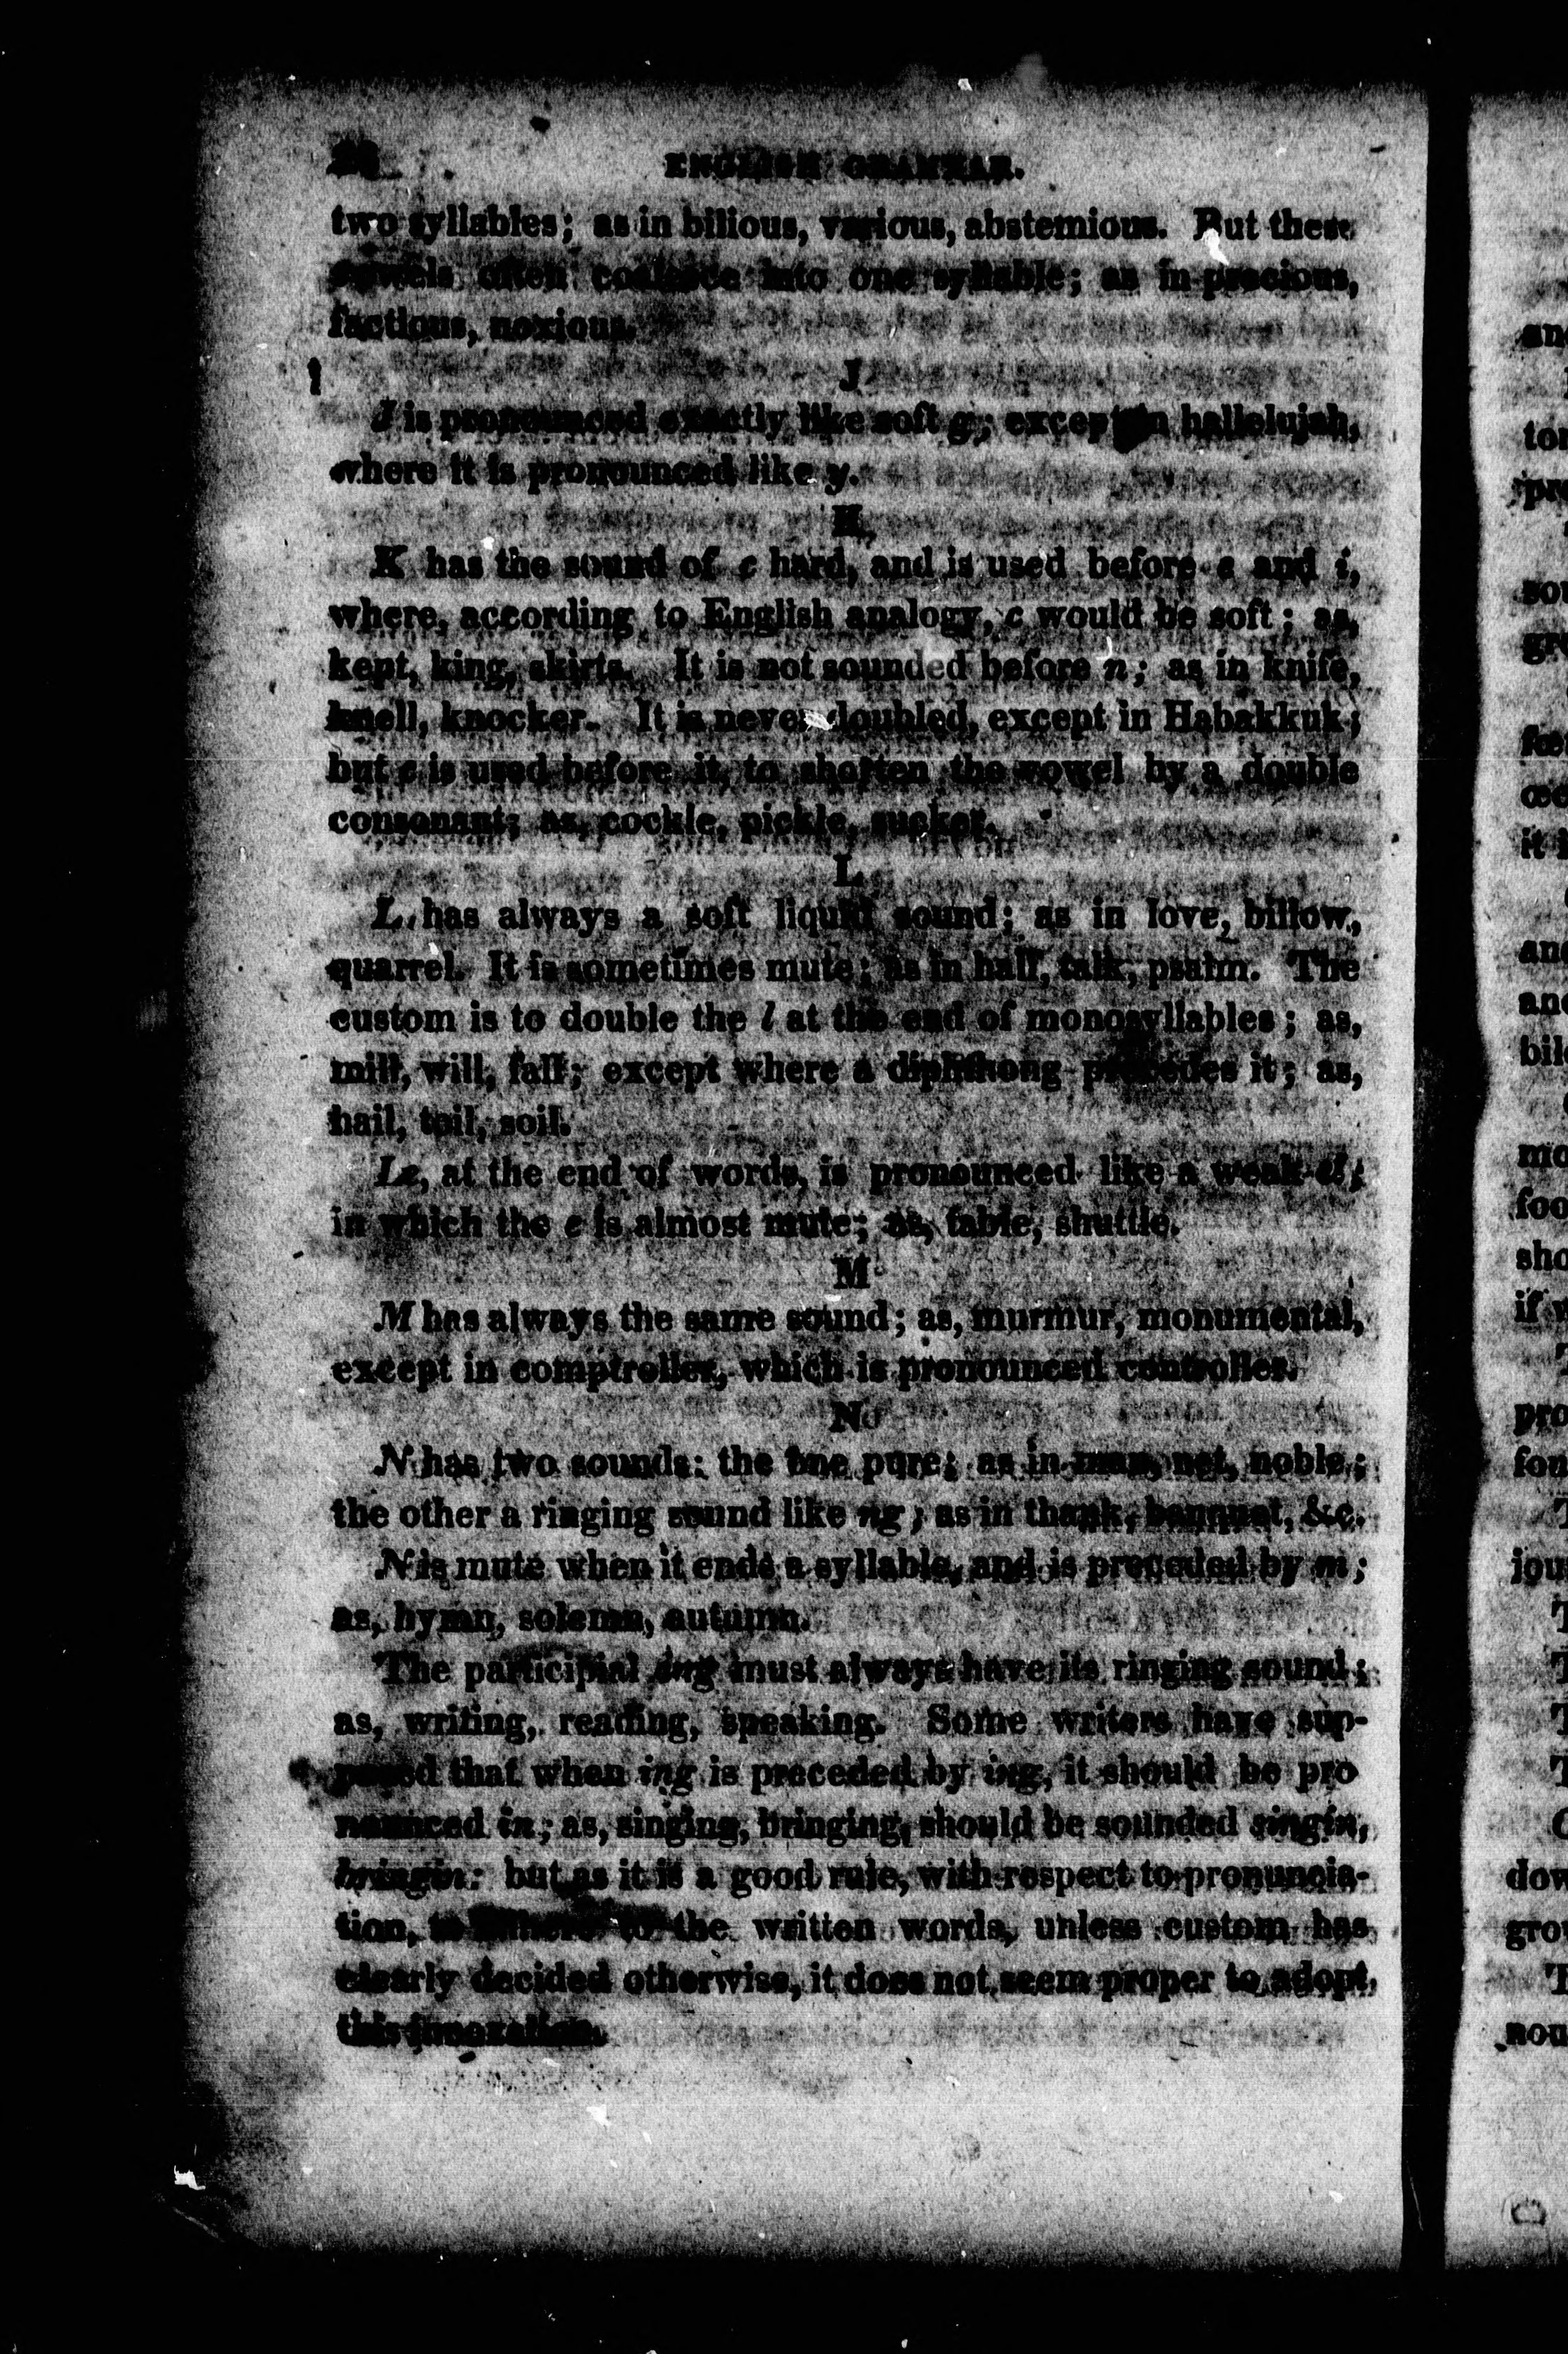 ENGLISH GRAMMAR.
two syllables; as in bilious, various, abstemious. But these
vowels often coalesce into one syllable; as in precious,
factious, noxious.
J
J is pronounced exactly like soft g; except in hallelujah,
where it is pronounced like y.
K
K has the sound of c hard, and is used before e and i,
where, according to English analogy, c would be soft; as,
kept, king, skirts. It is not sounded before n; as in knife,
knell, knocker. It is never doubled, except in Habakkuk;
but c is used before it, to shorten the vowel by a double
consonant; as, cockle, pickle, sucker.
L
L has always a soft liquid sound; as in love, billow,
quarrel. It is sometimes mute; as in half, talk, psalm. The
custom is to double the l at the end of monosyllables; as,
mill, will, fall; except where a diphthong precedes it; as,
hail, toil, soil.
Le, at the end of words, is pronounced like a weak el;
in which the e is almost mute; as, table, shuttle.
M
M has always the same sound; as, murmur, monumental,
except in comptroller, which is pronounced controller.
N
N has two sounds: the one pure; as in man, net, noble;
the other a ringing sound like ng; as in thank, banquet, &c.
N is mute when it ends a syllable, and is preceded by m;
as, hymn, solemn, autumn.
The participial ing must always have its ringing sound;
as, writing, reading, speaking. Some writers have sup-
posed that when ing is preceded by ing, it should be pro
nounced in; as, singing, bringing, should be sounded singin,
bringin: but as it is a good rule, with respect to pronuncia-
tion, to adhere to the written words, unless custom has
clearly decided otherwise, it does not seem proper to adopt
this innovation.